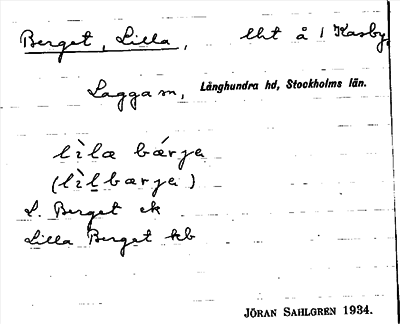 Berget, Lilla, lht å 1 Kasby,
Lagga sn, Långhundra hd, Stockholms län.
lìlæ bǽrjɛ
(lìlbærjɛ)
L. Berget ek
Lilla Berget kb
JÖRAN SAHLGREN 1934.